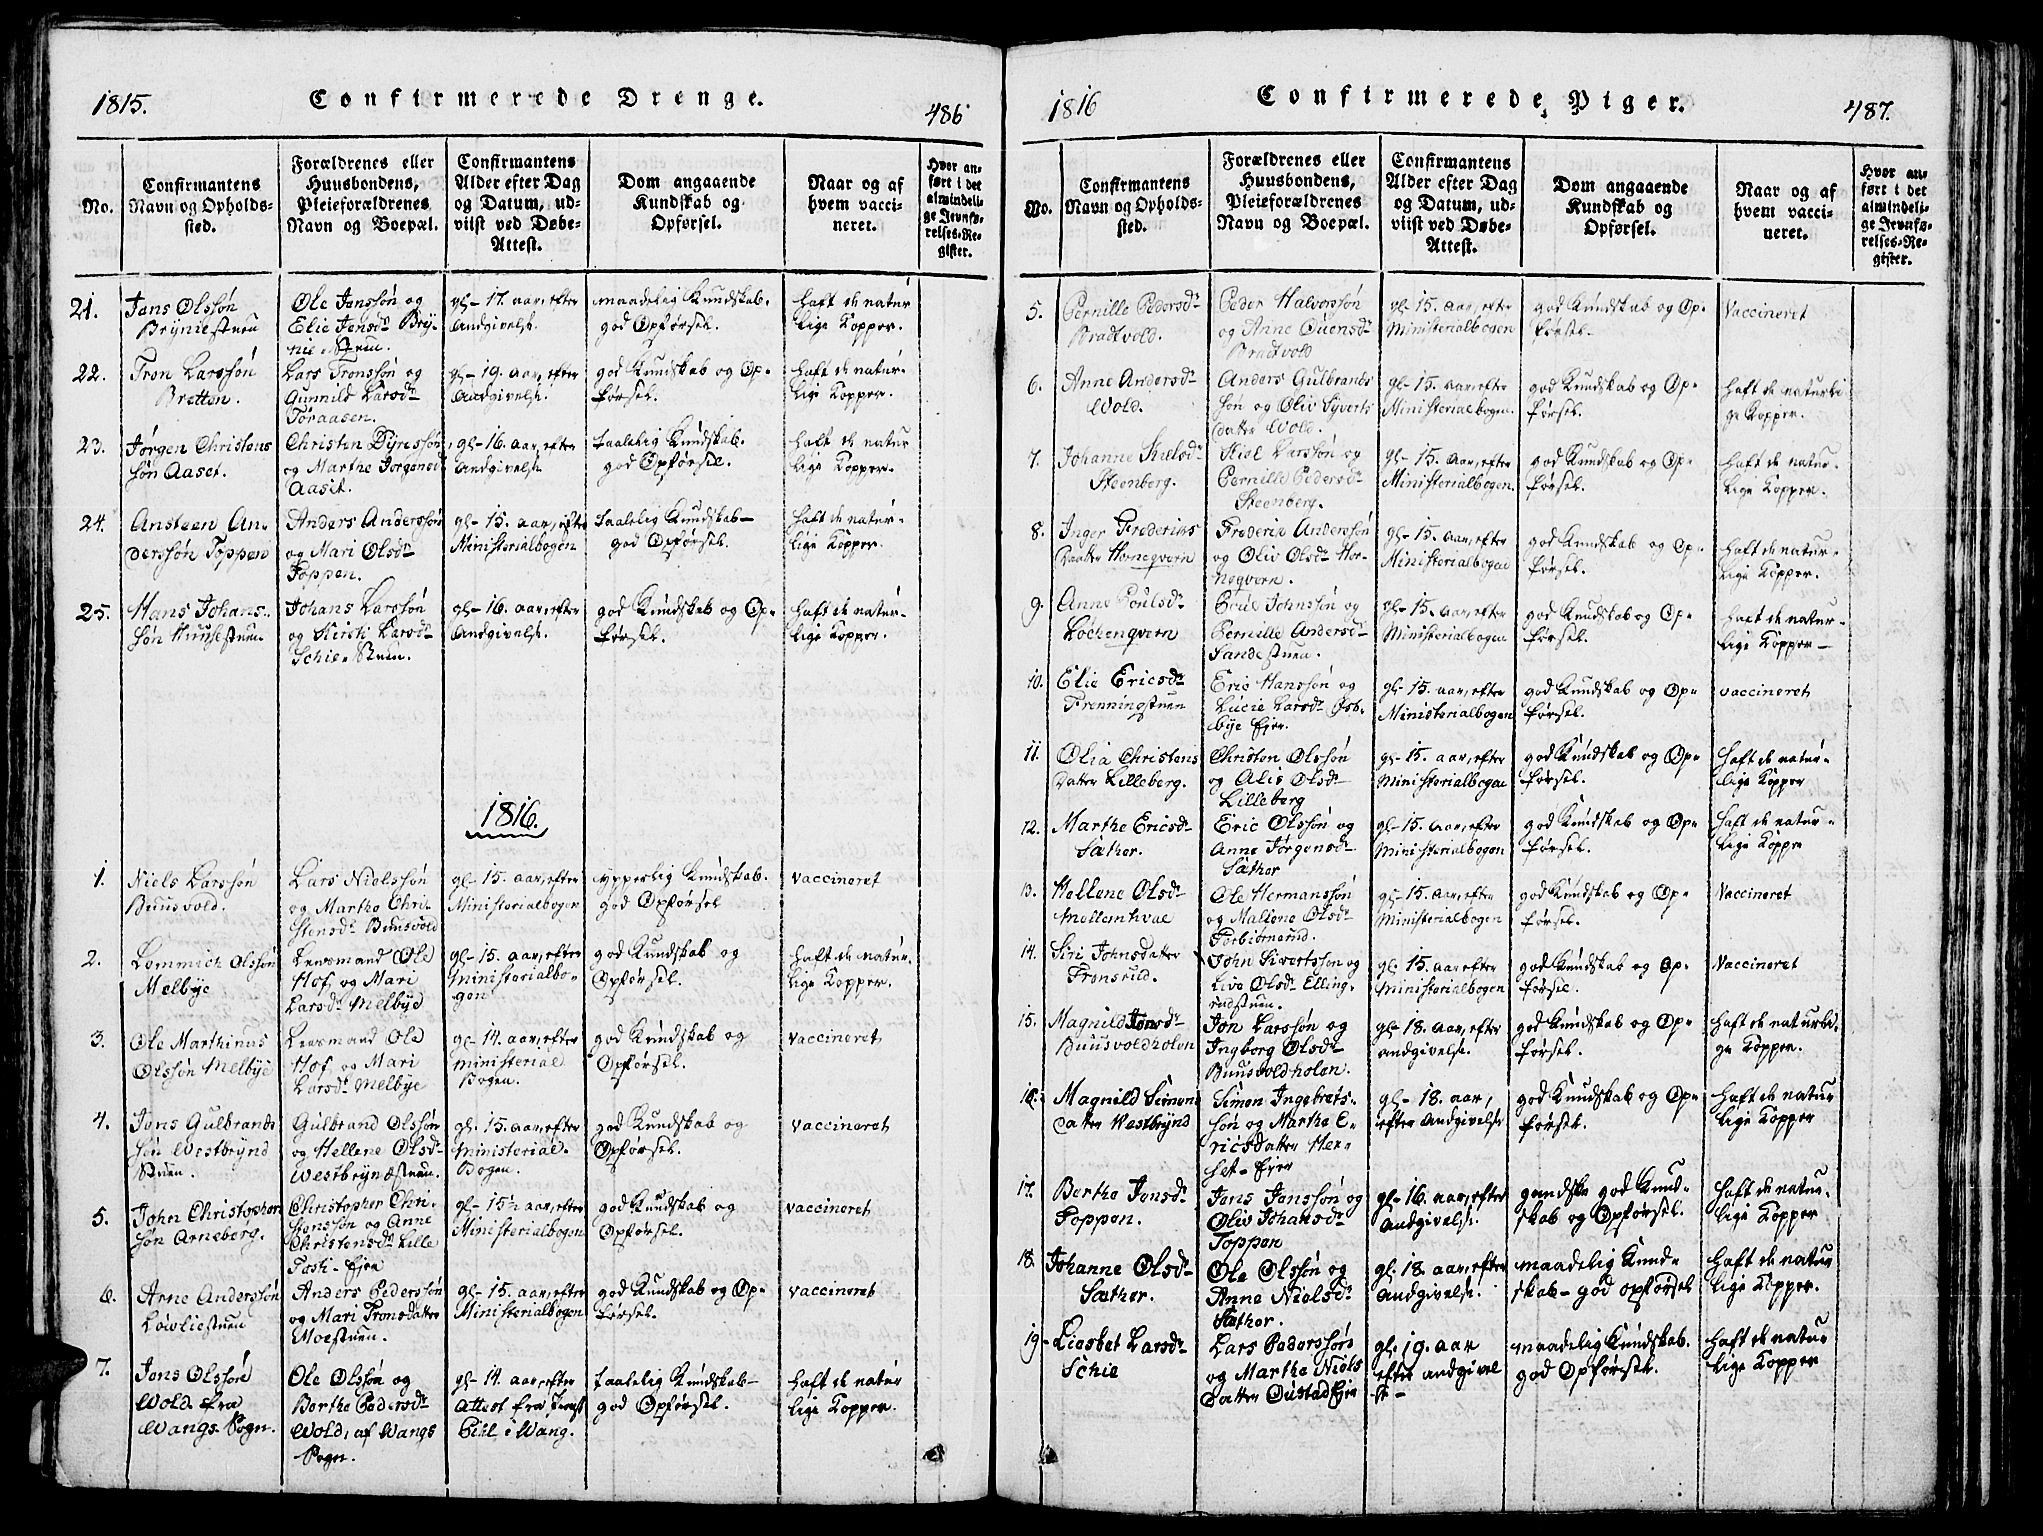 1815.
Confirmerede Drenge.
486
No.
Confirmantens
Navn og Opholds-
sted.
Forældrenes eller
Huusbondens,
Pleieforældrenes
Navn og Boepæl.
Confirmantens
Alder efter Dag
og Datum, ud-
viist ved Døbe-
Attest.
Dom angaaende
Kundskab og
Opførsel.
Naar og af
hvem vacci-
neret.
Hvor an-
ført i det
almindeli-
ge Jevnfø-
relses-Re-
gister.
21.
Jens Olssøn
Brynie stuen
Ole Jenssøn og
Elie Jensdr Bry-
nie-Stuen.
gl- 17. aar, efter
Andgivelse.
maadelig Kundskab.
god Opførsel.
haft de natur
lige Kopper.
22.
Tron Larssøn
Bretten.
Lars Tronssøn og
Gunnild Larsdr
Toraasen.
gl- 19. aar, efter
Andgivelse.
god Kundskab og Op-
førsel.
haft de natur-
lige Kopper.
23.
Jørgen Christens
søn Aaset.
Christen Dyressøn
og Marthe Jørgensdr
Aaset.
gl- 16. aar, efter
Andgivelse
taalelig Kundskab.
god Opførsel.
haft de natur
lige Kopper.
24.
Ansteen An-
derssøn Toppen
Anders Anderssøn
og Mari Olsdr
Toppen.
gl- 15. aar, efter
Ministerialbogen
taalelig Kundskab-
god Opførsel.
haft de natur-
lige Kopper.
25.
Hans Johans-
søn Huusestuen.
Johans Larssøn
og Kirsti Larsdr
Schie-Stuen.
gl- 16. aar, efter
Andgivelse.
god Kundskab og Op-
førsel.
haft de natur-
lige Kopper.
1816.
1.
Niels Larssøn
Buusvold.
Lars Nielssøn
og Marthe Chri-
stensdr Buusvold
gl- 15. aar, efter
Ministerialbogen
ypperlig Kundskab.
god Opførsel
vaccineret
2.
Lemmich Olssøn
Melbye
Lensmand Ole
Hof, og Mari
Larsdr Melbye
gl- 15. aar, efter
Ministerialbo-
gen
god Kundskab og
Opførsel.
haft de natur.
lige Kopper.
3.
Ole Marthinus
Olssøn Melbye
Lensmand Ole
Hof, og Mari
Larsdr Melbye
gl- 14. aar, efter
ministerial
Bogen.
god Kundskab og
Opførsel.
vaccineret
4.
Jens Gulbrands
søn Westbrynd
Stuen.
Gulbrand Olssøn
og Hellene Olsdr
Westbryndstuen.
gl- 15. aar, efter
Ministerial-
Bogen.
god Kundskab og
Opførsel.
vaccineret
5.
John Christopher
søn Arneberg.
Christopher Chri-
stenssøn og Anne
Christensdr Lille
Posti-Ejer
gl- 15½ aar, efter
Ministerialbogen
god Kundskab og
Opførsel.
vaccineret
6.
Arne Anderssøn
Løvliestuen
Anders Pederssøn
og Mari Tronsdatter
Moestuen.
gl- 15. aar, efter
Ministerialbogen
god Kundskab og Op-
førsel.
vaccineret
7.
Jens Olssøn
Wold fra
Wangs-Sogn.
Ole Olssøn og
Berthe Pedersdr
Wold, af Wangs
Sogn.
gl- 14. aar, efter
Attest fra Provst
Pihl i Wang.
taalelig Kundskab-
god Opførsel.
haft de natur
lige Kopper.
1816
Confirmerede Piger.
487.
No.
Confirmantens
Navn og Opholds-
sted.
Forældrenes eller
Huusbondens,
Pleieforældrenes
Navn og Boepæl.
Confirmantens
Alder efter Dag
og Datum, ud-
viist ved Døbe-
Attest.
Dom angaaende
Kundskab og
Opførsel.
Naar og af
hvem vacci-
neret.
Hvor an-
ført i det
almindeli-
ge Jevnfø-
relses-Re-
gister.
5.
Pernille Pedersdr
Bradtvold.
Peder Halverssøn
og Anne Ouensdr
Bradtvold
gl- 15. aar, efter
Ministerialbogen
god Kundskab og Op-
førsel.
Vaccineret
6.
Anne Andersdr
Wold.
Anders Gulbrands
søn og Oliv Syverts
datter Wold.
gl- 15. aar, efter
Ministerialbogen.
god Kundskab og Op-
førsel.
haft de naturli
ge Kopper.
7.
Johanne Kielsdr
Steenberg.
Kiel Larssøn og
Pernille Pedersdr
Steenberg.
gl- 15. aar, efter
Ministerialbogen.
god Kundskab og Op-
førsel.
haft de natur-
lige Kopper.
8.
Inger Frederiks
Datter Hornegvern
Frederik Anderssøn
og Oliv Olsdr Hor-
negvern.
gl- 15. aar, efter
Ministerialbogen
god Kundskab og Op-
førsel.
haft de natur-
lige Kopper.
9.
Anne Poulsdr
Løchengvern
Poul Johnssøn og
Pernille Andersdr
Sandestuen.
gl- 15. aar, efter
Ministerialbogen
god Kundskab og Op-
førsel.
haft de natur-
lige Kopper-
10.
Elie Ericsdr
Frenningstuen
Eric Hanssøn og
Lucie Larsdr Osb-
bye Ejer.
gl- 15. aar, efter
Ministerialbogen
god Kundskab og Op-
førsel.
vaccineret
11.
Olia Christens
Datter Lilleberg.
Christen Olssøn
og Alis Olsdr
Lilleberg
gl- 15. aar, efter
Ministerialbogen
god Kundskab og Op-
førsel.
haft de natur-
lige Kopper
12.
Marthe Ericsdr
Sæther.
Eric Olssøn og
Anne Jørgensdr
Sæther
gl- 15. aar, efter
Ministerialbogen
god Kundskab og Op-
førsel.
haft de natur-
lige Koppe
13.
Hellene Olsdr
Mellemhvæl
Ole Hermanssøn
og Malene Olsdr
Torbiørnsrud.
gl- 15. aar, efter
Ministerialbogen
god Kundskab og Op-
førsel.
Vaccineret
14.
Siri Johnsdatter
Tronsrud.
John Sivertssøn og
Live Olsdr Elling-
rudstuen.
gl- 15. aar efter
Ministerialbogen
god Kundskab og Op-
førsel.
Vaccineret
15.
Magnild Jonsdr
Buusvoldholen
Jon Larssøn og
Ingborg Olsdr
Buusvoldholen.
gl- 18. aar, efter
andgivelse.
god Kundskab og Op-
førsel.
haft de naturli-
ge Kopper.
16.
Magnild Simons
datter Westbrynd
Simen Ingebrets-
søn og Marthe E-
ricsdatter Her-
set-Ejer
gl- 18. aar,
efter Andgivelse
god Kundskab og Op-
førsel.
haft de natur
lige Kopper
17.
Berthe Jensdr
Toppen.
Jens Jenssøn og
Oliv Johansdr
Toppen
gl- 16. aar, efter
Andgivelse.
gandske god Kund-
skab og Opførsel.
haft de natur-
lige Kopper
18.
Johanne Olsdr
Sæther.
Ole Olssøn og
Anne Nielsdr
Sæther.
gl. 18. aar, efter
Andgivelse.
maadelig Kund-
skab-god opførsel
haft de natur
lige Kopper.
19-
Liesbet Larsdr
Schie
Lars Pederssøn
og Marthe Niels
Datter Oustad Ejer
gl. 19. aar
efter andgivel
se-
maadelig Kundskab.
god Opførsel.
haft de natur-
lige Kopper